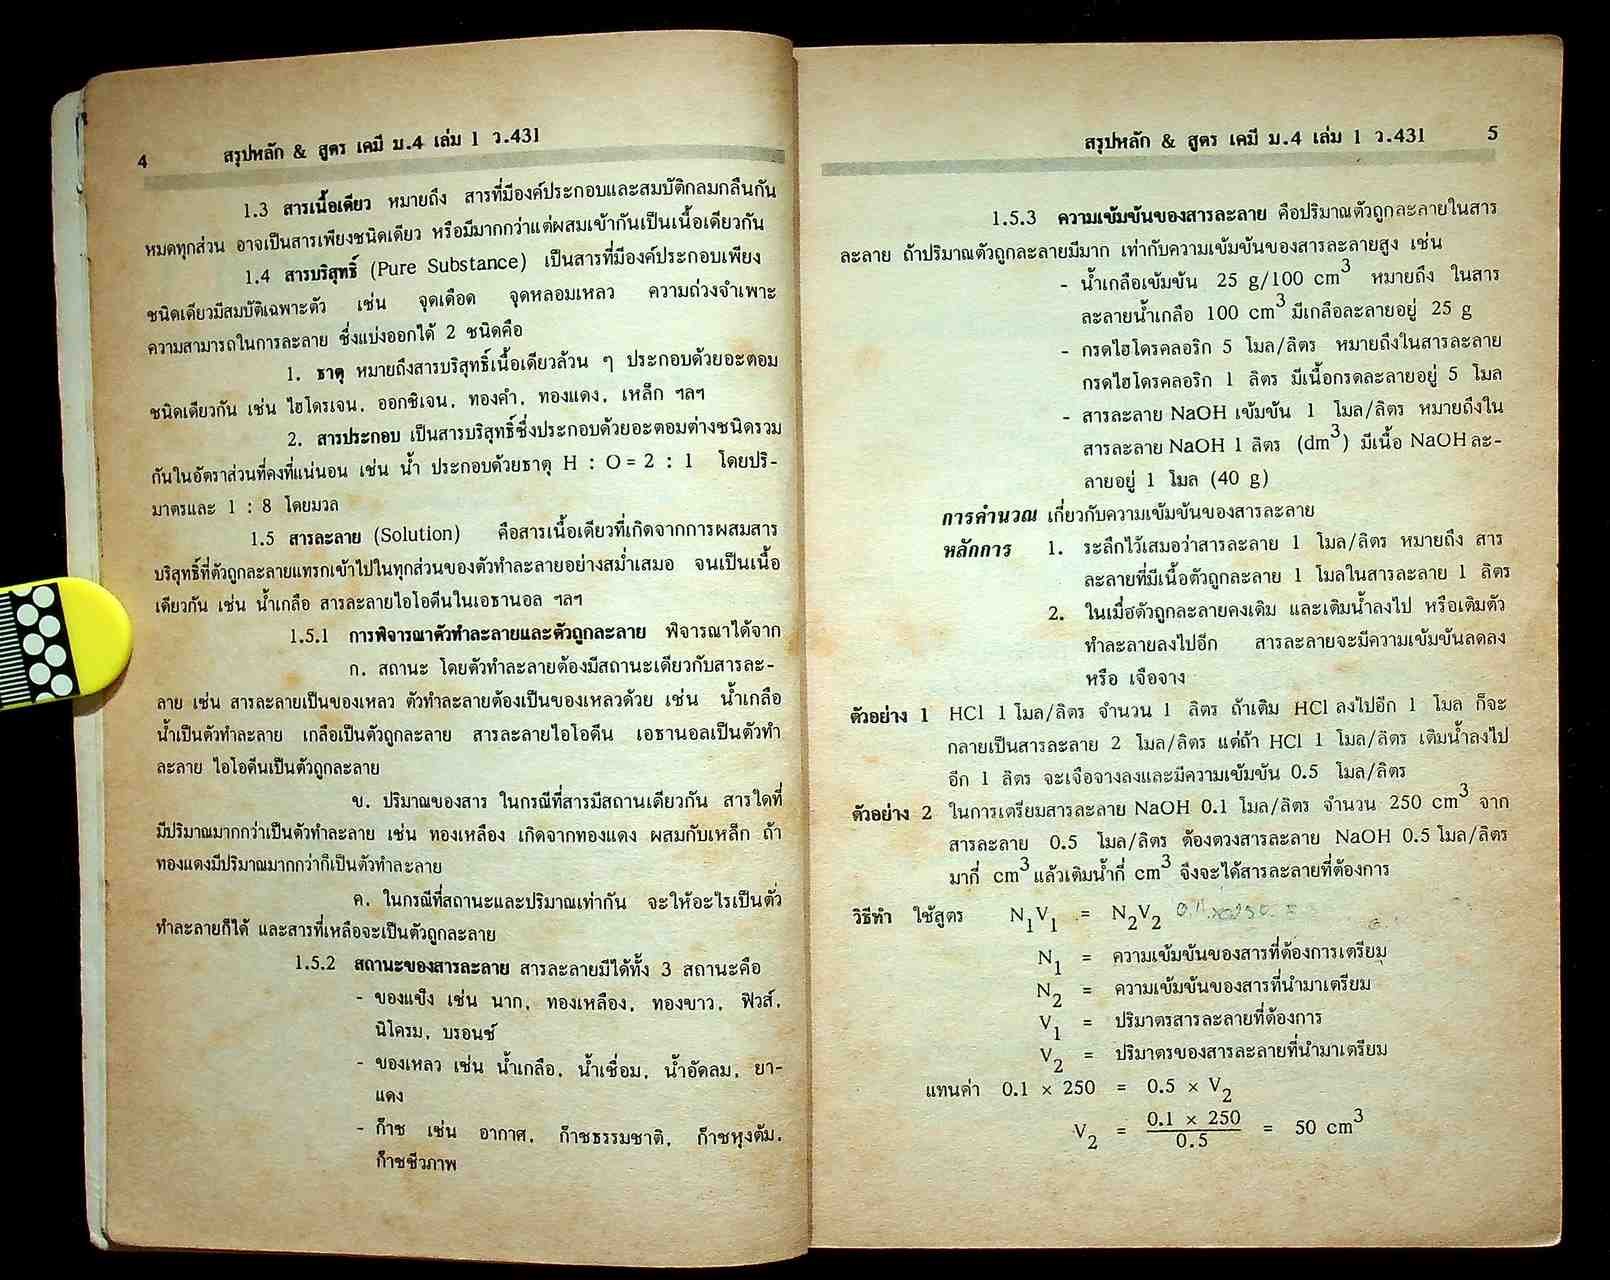 4 สรุปหลัก & สูตร เคมี ม.4 เล่ม 1 ว.431
1.3 สารเนื้อเดียว หมายถึง สารที่มีองค์ประกอบและสมบัติกลมกลืนกัน
หมดทุกส่วน อาจเป็นสารเพียงชนิดเดียว หรือมีมากกว่าแต่ผสมเข้ากันเป็นเนื้อเดียวกัน
1.4 สารบริสุทธิ์ (Pure Substance) เป็นสารที่มีองค์ประกอบเพียง
ชนิดเดียวมีสมบัติเฉพาะตัว เช่น จุดเดือด จุดหลอมเหลว ความถ่วงจำเพาะ
ความสามารถในการละลาย ซึ่งแบ่งออกได้ 2 ชนิดคือ
1. ธาตุ หมายถึงสารบริสุทธิ์เนื้อเดียวล้วน ๆ ประกอบด้วยอะตอม
ชนิดเดียวกัน เช่น ไฮโดรเจน, ออกซิเจน, ทองคำ, ทองแดง, เหล็ก ฯลฯ
2. สารประกอบ เป็นสารบริสุทธิ์ซึ่งประกอบด้วยอะตอมต่างชนิดรวม
กันในอัตราส่วนที่คงที่แน่นอน เช่น น้ำ ประกอบด้วยธาตุ H : O = 2 : 1 โดยปริ-
มาตรและ 1 : 8 โดยมวล
1.5 สารละลาย (Solution) คือสารเนื้อเดียวที่เกิดจากการผสมสาร
บริสุทธิ์ที่ตัวถูกละลายแทรกเข้าไปในทุกส่วนของตัวทำละลายอย่างสม่ำเสมอ จนเป็นเนื้อ
เดียวกัน เช่น น้ำเกลือ สารละลายไอโอดีนในเอธานอล ฯลฯ
1.5.1 การพิจารณาตัวทำละลายและตัวถูกละลาย พิจารณาได้จาก
ก. สถานะ โดยตัวทำละลายต้องมีสถานะเดียวกับสารละ-
ลาย เช่น สารละลายเป็นของเหลว ตัวทำละลายต้องเป็นของเหลวด้วย เช่น น้ำเกลือ
น้ำเป็นตัวทำละลาย เกลือเป็นตัวถูกละลาย สารละลายไอโอดีน เอธานอลเป็นตัวทำ
ละลาย ไอโอดีนเป็นตัวถูกละลาย
ข. ปริมาณของสาร ในกรณีที่สารมีสถานเดียวกัน สารใดที่
มีปริมาณมากกว่าเป็นตัวทำละลาย เช่น ทองเหลือง เกิดจากทองแดง ผสมกับเหล็ก ถ้า
ทองแดงมีปริมาณมากกว่าก็เป็นตัวทำละลาย
ค. ในกรณีที่สถานะและปริมาณเท่ากัน จะให้อะไรเป็นตัว
ทำละลายก็ได้ และสารที่เหลือจะเป็นตัวถูกละลาย
1.5.2 สถานะของสารละลาย สารละลายมีได้ทั้ง 3 สถานะคือ
- ของแข็ง เช่น นาก, ทองเหลือง, ทองขาว, ฟิวส์,
นิโครม, บรอนซ์
- ของเหลว เช่น น้ำเกลือ, น้ำเชื่อม, น้ำอัดลม, ยา-
แดง
- ก๊าซ เช่น อากาศ, ก๊าซธรรมชาติ, ก๊าซหุงต้ม,
ก๊าซชีวภาพ
สรุปหลัก & สูตร เคมี ม.4 เล่ม 1 ว.431 5
1.5.3 ความเข้มข้นของสารละลาย คือปริมาณตัวถูกละลายในสาร
ละลาย ถ้าปริมาณตัวถูกละลายมีมาก เท่ากับความเข้มข้นของสารละลายสูง เช่น
- น้ำเกลือเข้มข้น 25 g/100 cm³ หมายถึง ในสาร
ละลายน้ำเกลือ 100 cm³ มีเกลือละลายอยู่ 25 g
- กรดไฮโดรคลอริก 5 โมล/ลิตร หมายถึงในสารละลาย
กรดไฮโดรคลอริก 1 ลิตร มีเนื้อกรดละลายอยู่ 5 โมล
- สารละลาย NaOH เข้มข้น 1 โมล/ลิตร หมายถึงใน
สารละลาย NaOH 1 ลิตร (dm³) มีเนื้อ NaOH ละ-
ลายอยู่ 1 โมล (40 g)
การคำนวณ เกี่ยวกับความเข้มข้นของสารละลาย
หลักการ 1. ระลึกไว้เสมอว่าสารละลาย 1 โมล/ลิตร หมายถึง สาร
ละลายที่มีเนื้อตัวถูกละลาย 1 โมลในสารละลาย 1 ลิตร
2. ในเมื่อตัวถูกละลายคงเดิม และเติมน้ำลงไป หรือเติมตัว
ทำละลายลงไปอีก สารละลายจะมีความเข้มข้นลดลง
หรือ เจือจาง
ตัวอย่าง 1 HCl 1 โมล/ลิตร จำนวน 1 ลิตร ถ้าเติม HCl ลงไปอีก 1 โมล ก็จะ
กลายเป็นสารละลาย 2 โมล/ลิตร แต่ถ้า HCl 1 โมล/ลิตร เติมน้ำลงไป
อีก 1 ลิตร จะเจือจางลงและมีความเข้มข้น 0.5 โมล/ลิตร
ตัวอย่าง 2 ในการเตรียมสารละลาย NaOH 0.1 โมล/ลิตร จำนวน 250 cm³ จาก
สารละลาย 0.5 โมล/ลิตร ต้องตวงสารละลาย NaOH 0.5 โมล/ลิตร
มากี่ cm³ แล้วเติมน้ำกี่ cm³ จึงจะได้สารละลายที่ต้องการ
วิธีทำ ใช้สูตร N₁V₁ = N₂V₂
N₁ = ความเข้มข้นของสารที่ต้องการเตรียม
N₂ = ความเข้มข้นของสารที่นำมาเตรียม
V₁ = ปริมาตรสารละลายที่ต้องการ
V₂ = ปริมาตรของสารละลายที่นำมาเตรียม
แทนค่า 0.1 × 250 = 0.5 × V₂
V₂ = 0.1 × 250 / 0.5 = 50 cm³